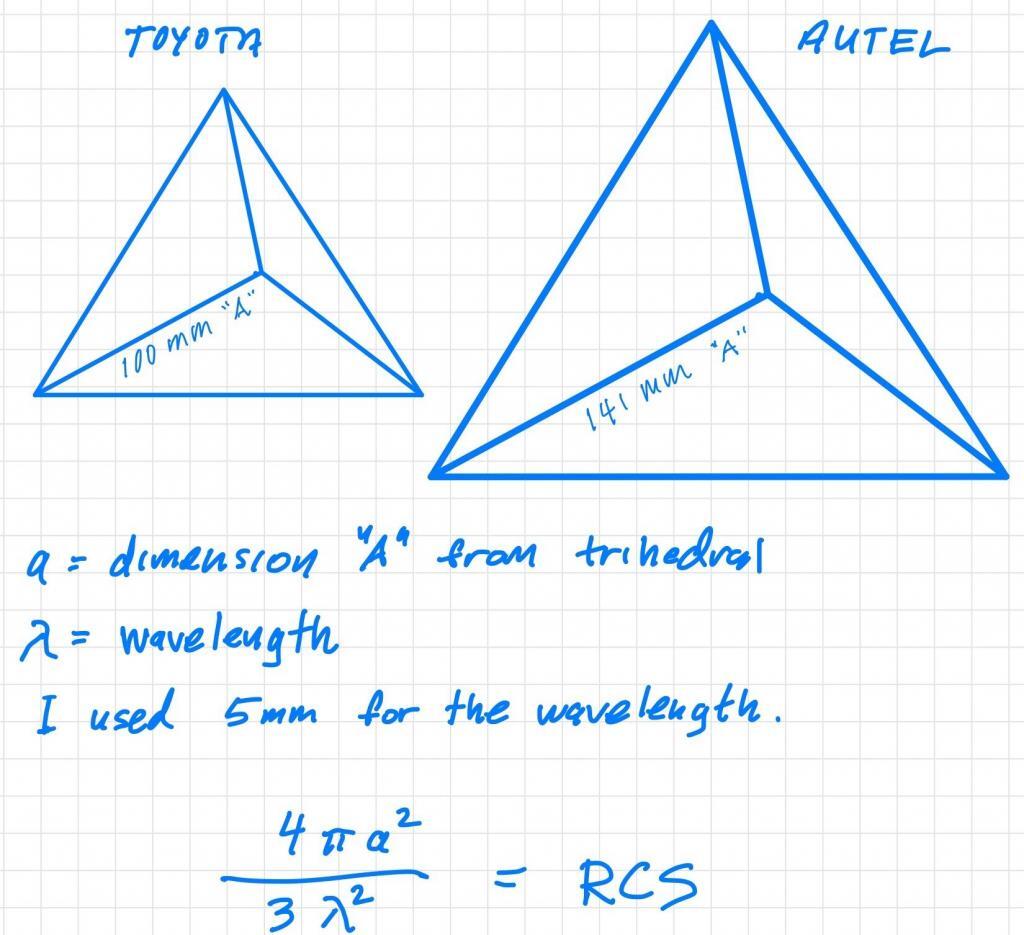 TOYOTA
AUTEL
100 mm "A"
141 mm "A"
a = dimension "A" from trihedral
λ = wavelength
I used 5mm for the wavelength.
4 π a²
3 λ²
= RCS